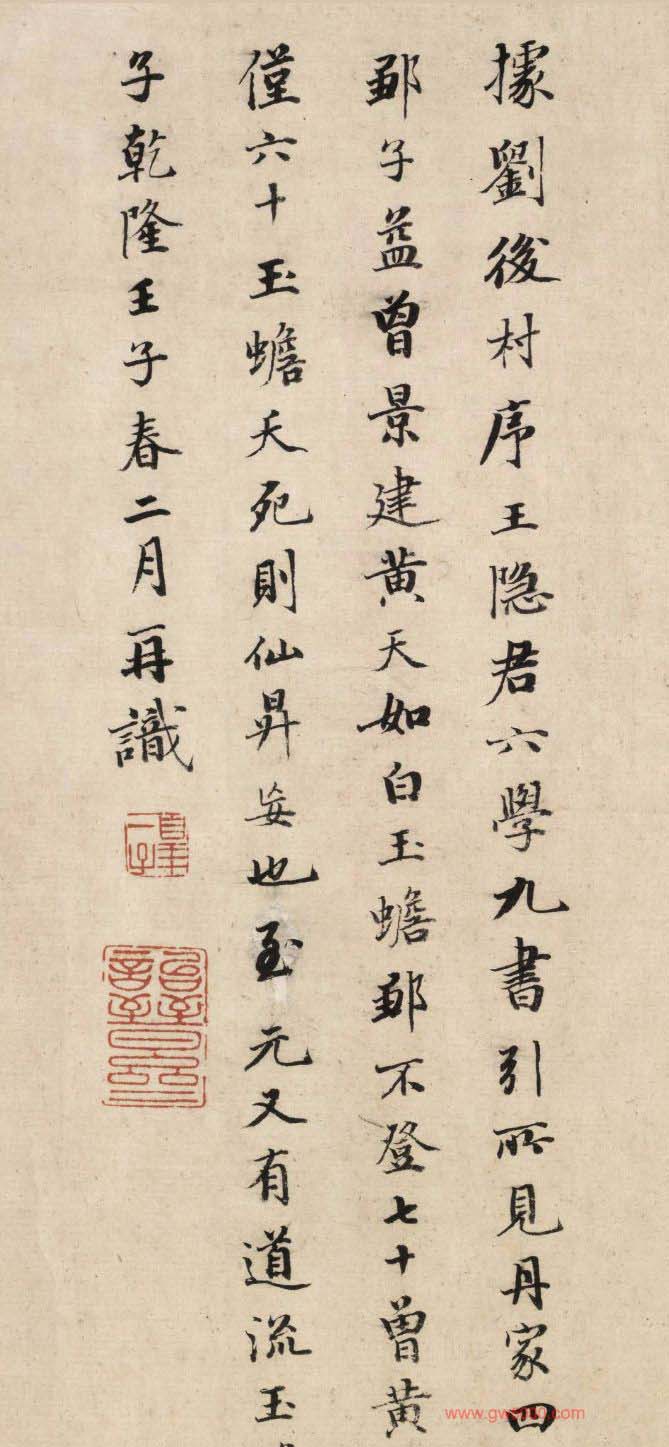 據劉後村序王隐君六學九書引所見丹家四
鄒子益曾景建黄天如白玉蟾鄒不登七十曾黄
僅六十玉蟾夭死則仙昇妄也至元又有道流玉
子乾隆壬子春二月再識
www.gw
.com